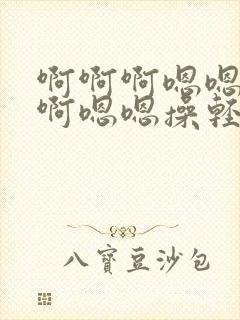 啊啊啊嗯嗯
啊嗯嗯操輕
八寶豆沙包